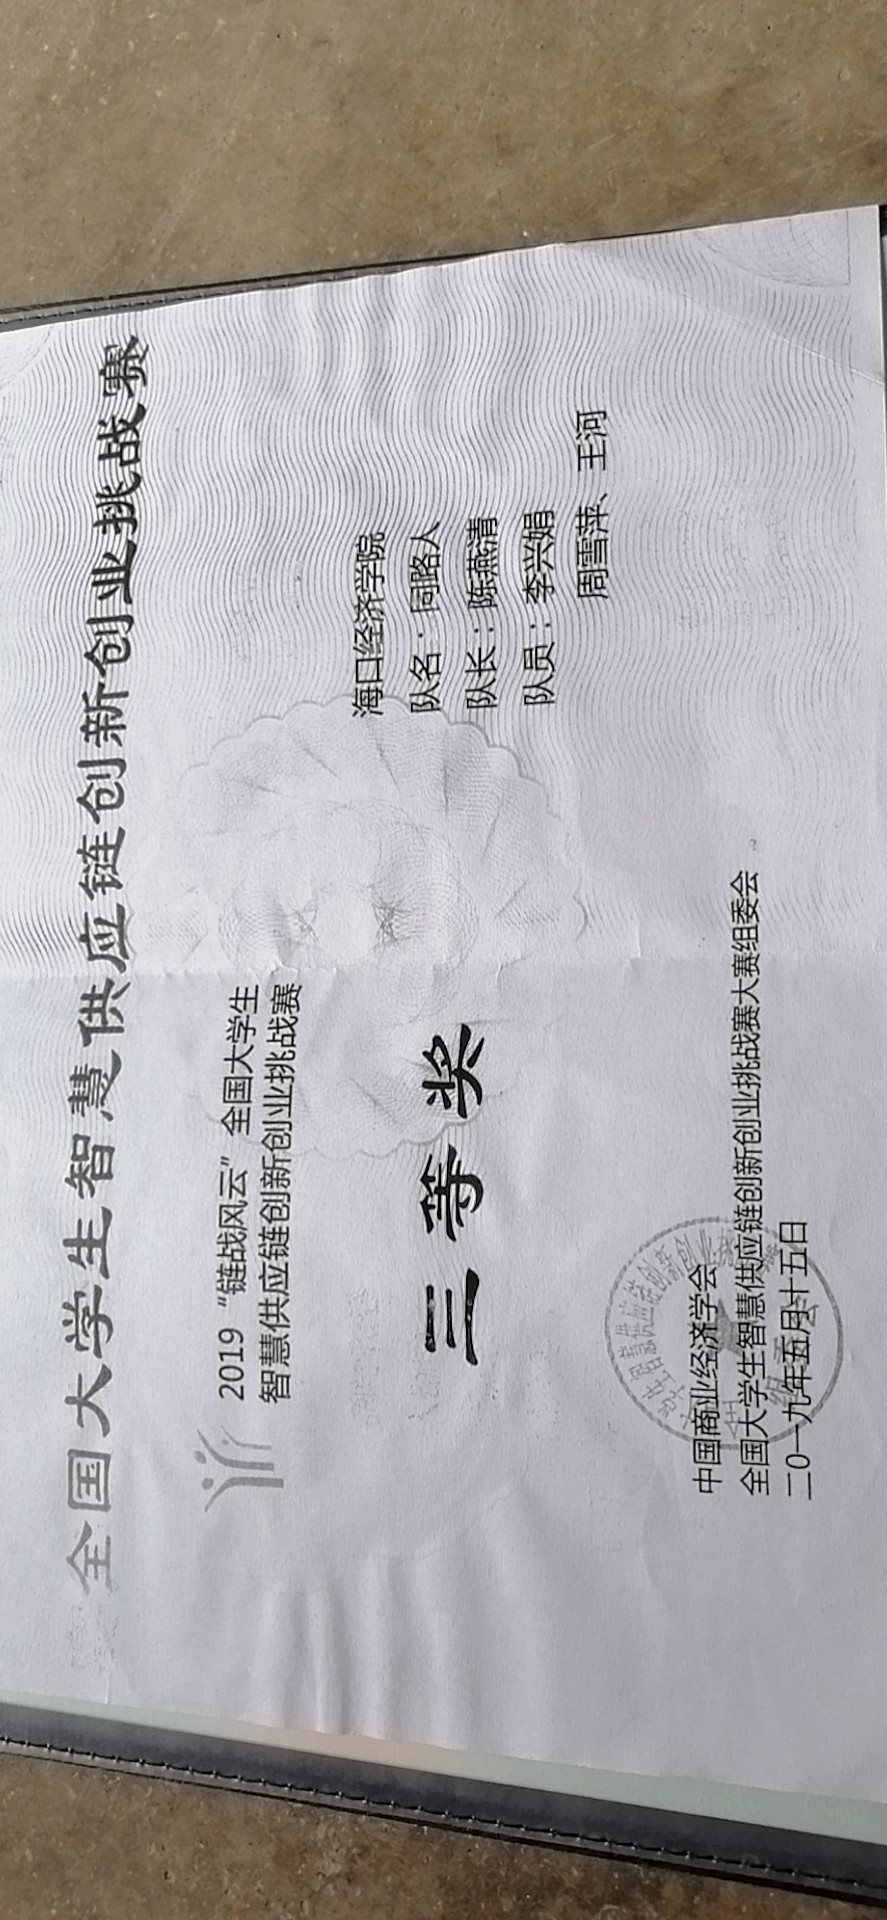 全国大学生智慧供应链创新创业挑战赛
2019“链战风云”全国大学生
智慧供应链创新创业挑战赛
三等奖
海口经济学院
队名：同路人
队长：陈燕清
队员：李兴娟
周雪萍、王河
中国商业经济学会
全国大学生智慧供应链创新创业挑战赛大赛组委会
二0一九年五月十五日